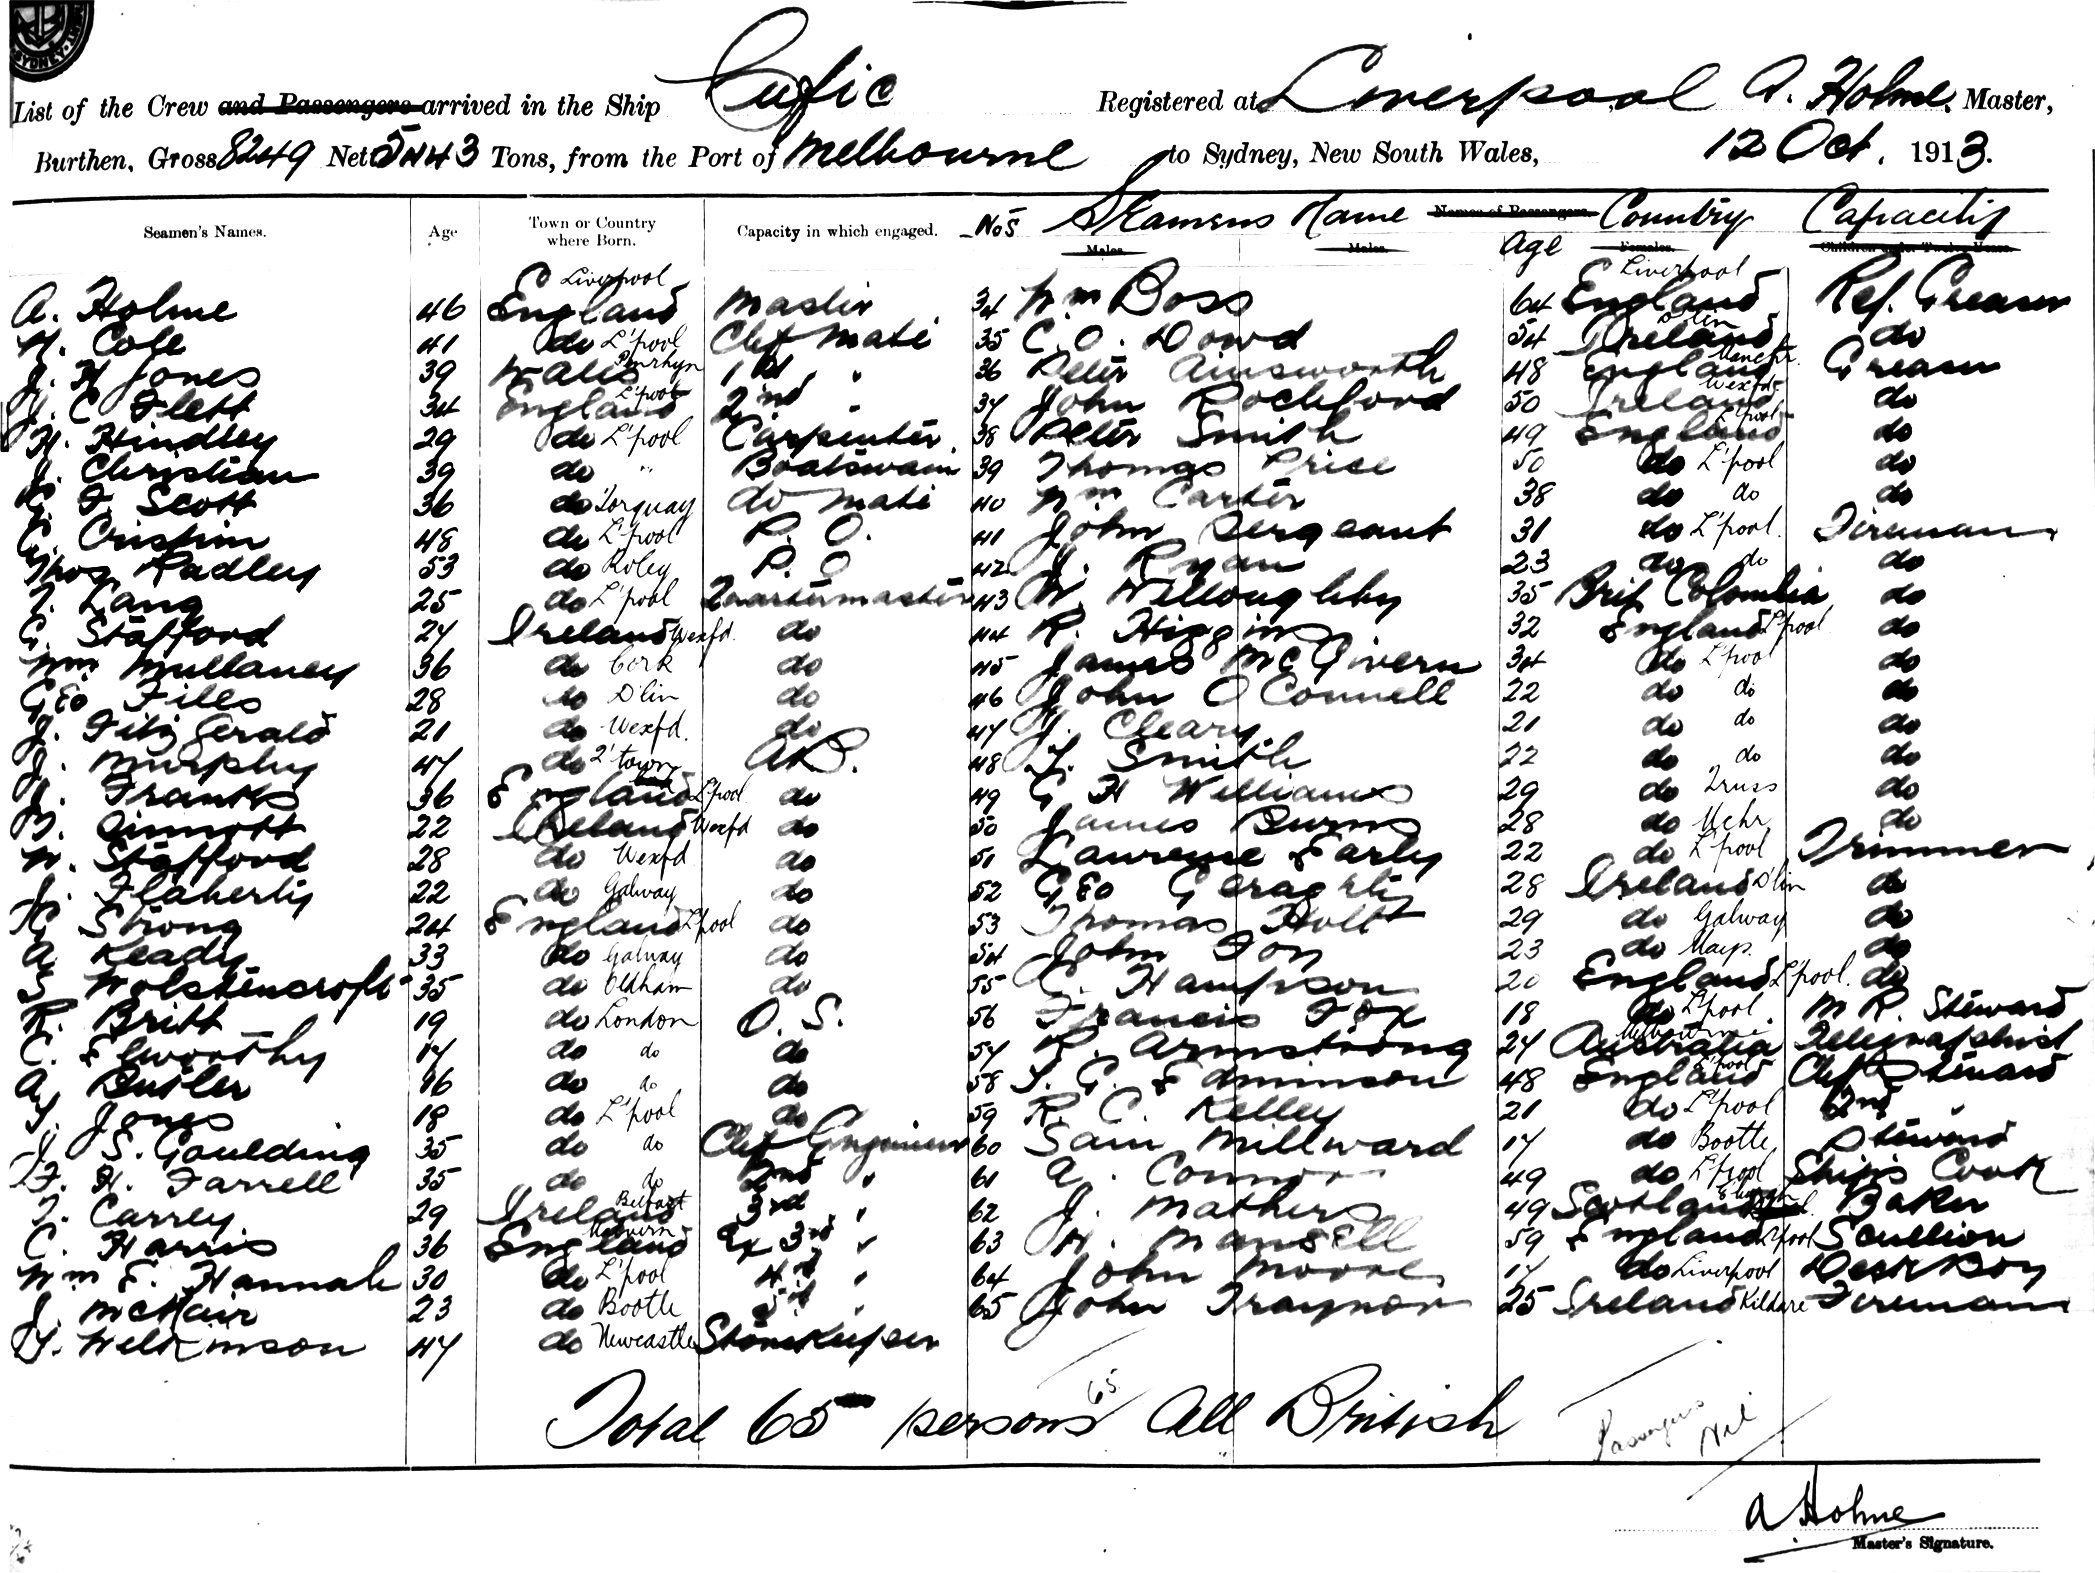 SYDNEY
List of the Crew and Passengers arrived in the Ship Cufic Registered at Liverpool A. Holme. Master,
Burthen, Gross 8249 Net 5443 Tons, from the Port of Melbourne to Sydney, New South Wales, 12 Oct. 1913.
Seamen's Names. Age Town or Country where Born. Capacity in which engaged. Nos Seamens Name Names of Passengers. Age Country Capacity
Males. Males. Females. Children under Twelve Years.
A. Holme 46 England Liverpool Master 34 Wm Boss 64 England Liverpool Ref. Greaser
W. Cole 41 do L'pool Chf Mate 35 C. O. Dowd 54 Ireland D'lin do
J. H Jones 39 Wales Penrhyn 1st " 36 Peter Ainsworth 48 England Manchr. Greaser
J. C Flett 34 England L'pool 2nd " 37 John Rochford 50 Ireland Wexfd do
H. Hindley 29 do L'pool Carpenter 38 Peter Smith 49 England L'pool do
J. Christian 39 do " Boatswain 39 Thomas Price 50 do L'pool do
F. Scott 36 do Torquay do Mate 40 Wm Carter 38 do do do
48 do L'pool P. O. 41 John Sergeant 31 do L'pool. Fireman
Thos Radley 53 do P. O 42 J. Ryan 23 do do do
T. Lang 25 do L'pool Quartermaster 43 W. Willoughby 35 Brit Colombia do
G. Stafford 27 Ireland Wexfd. do 44 R. Higgins 32 England L'pool do
Wm Mullaney 36 do Cork do 45 James McGivern 34 do L'pool do
Geo Files 28 do D'lin do 46 John O Connell 22 do do do
J. Fitzgerald 21 do Wexfd. do 47 J. Cleary 21 do do do
J. Murphy 47 do Q'town A.B. 48 T. Smith 22 do do do
J. Franks 36 England L'pool do 49 G H Williams 29 do do
Sinnott 22 Ireland Wexfd do 50 James Burns 28 do do
W. Stafford 28 do Wexfd do 51 Laurence Early 22 do L'pool Trimmer
J. Flaherty 22 do Galway do 52 Geo Geraghty 28 Ireland D'lin do
G Strong 24 England L'pool do 53 Thomas Holt 29 do Galway do
A Keady 33 do Galway do 54 John Foy 23 do Mayo. do
S Wolstencroft 35 do Oldham do 55 Hampson 20 England L'pool. do
R. Britt 19 do London O. S. 56 Francis Fox 18 do L'pool M R. Steward
C. Elworthy 17 do do do 57 R. Armstrong 27 Australia Melbourne Telegraphist
A Butler 16 do do do 58 T. G. Edminson 48 England L'pool Chf Steward
T. Jones 18 do L'pool do 59 R. C. Kelley 21 do L'pool 2nd "
J. S. Goulding 35 do do Chf Engineer 60 Sam Millward 17 do Bootle Steward
F. H. Farrell 35 do do 2nd " 61 A. Connor 49 do L'pool Ships Cook
T. Carrey. 29 Ireland Belfast 3rd " 62 J. Mathers 49 Scotland Baker
C. Harris 36 England Malvern Ex 3rd " 63 W. Mansell 59 England L'pool Scullion
Wm E. Hannah 30 do L'pool 4th " 64 John Moore 17 do Liverpool Deck Boy
J. McNair 23 do Bootle 5th " 65 John Traynor 25 Ireland Kildare Fireman
Wilkinson 47 do Newcastle Storekeeper
65
Total 65 persons All British
Passengers Nil
A Holme
Master's Signature.